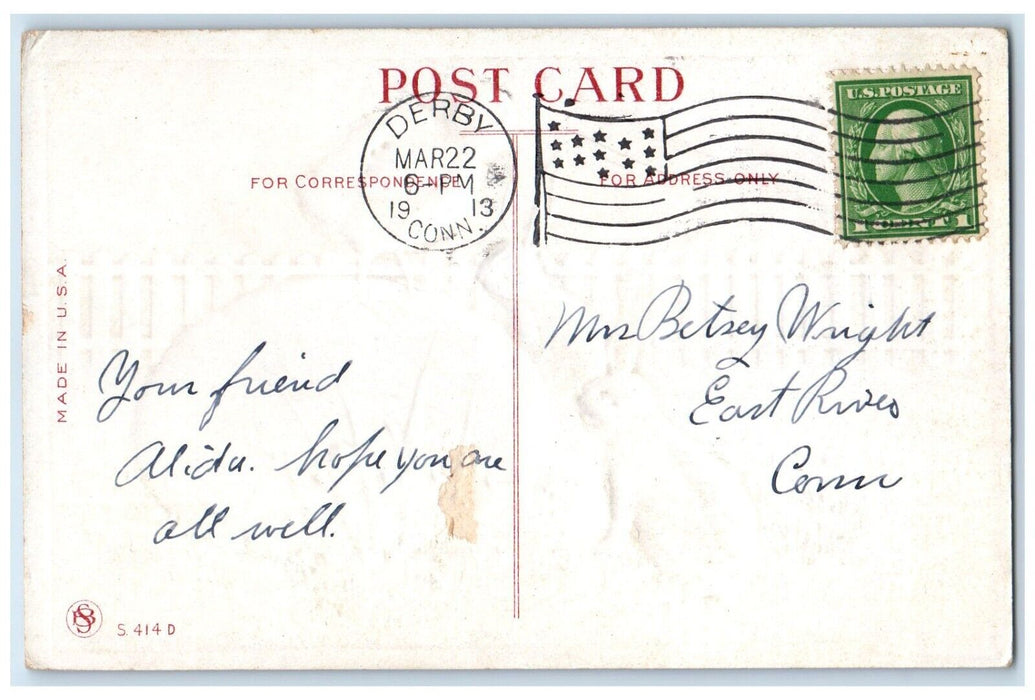 POST CARD
DERBY
MAR 22
6-PM
19 13
CONN.
U.S. POSTAGE
1 CENT 1
FOR CORRESPONDENCE
FOR ADDRESS ONLY
MADE IN U.S.A.
Your friend
Alida. hope you are
all well.
Mrs Betsey Wright
East River
Conn
S. 414 D